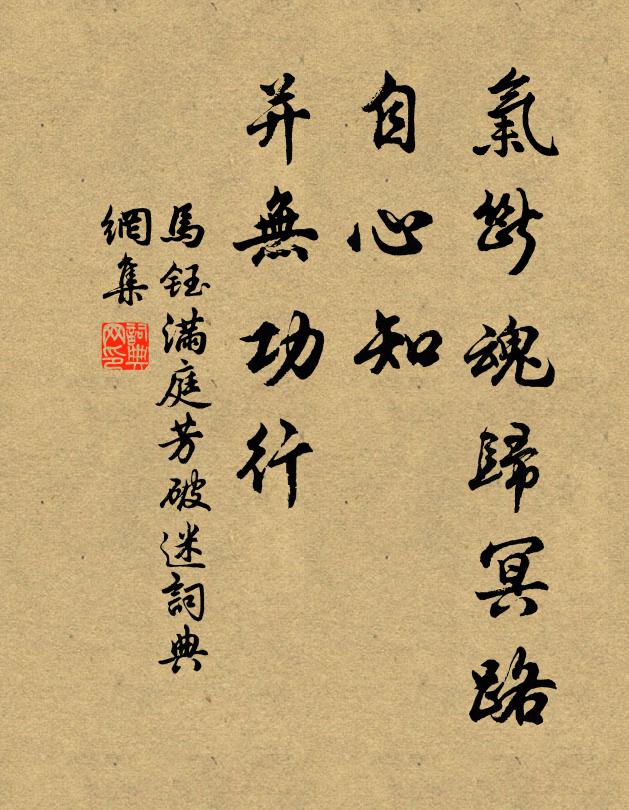 氣斷魂歸冥路
自心知
并無功行
馬鈺滿庭芳破迷詞典
網集
詞典
网印